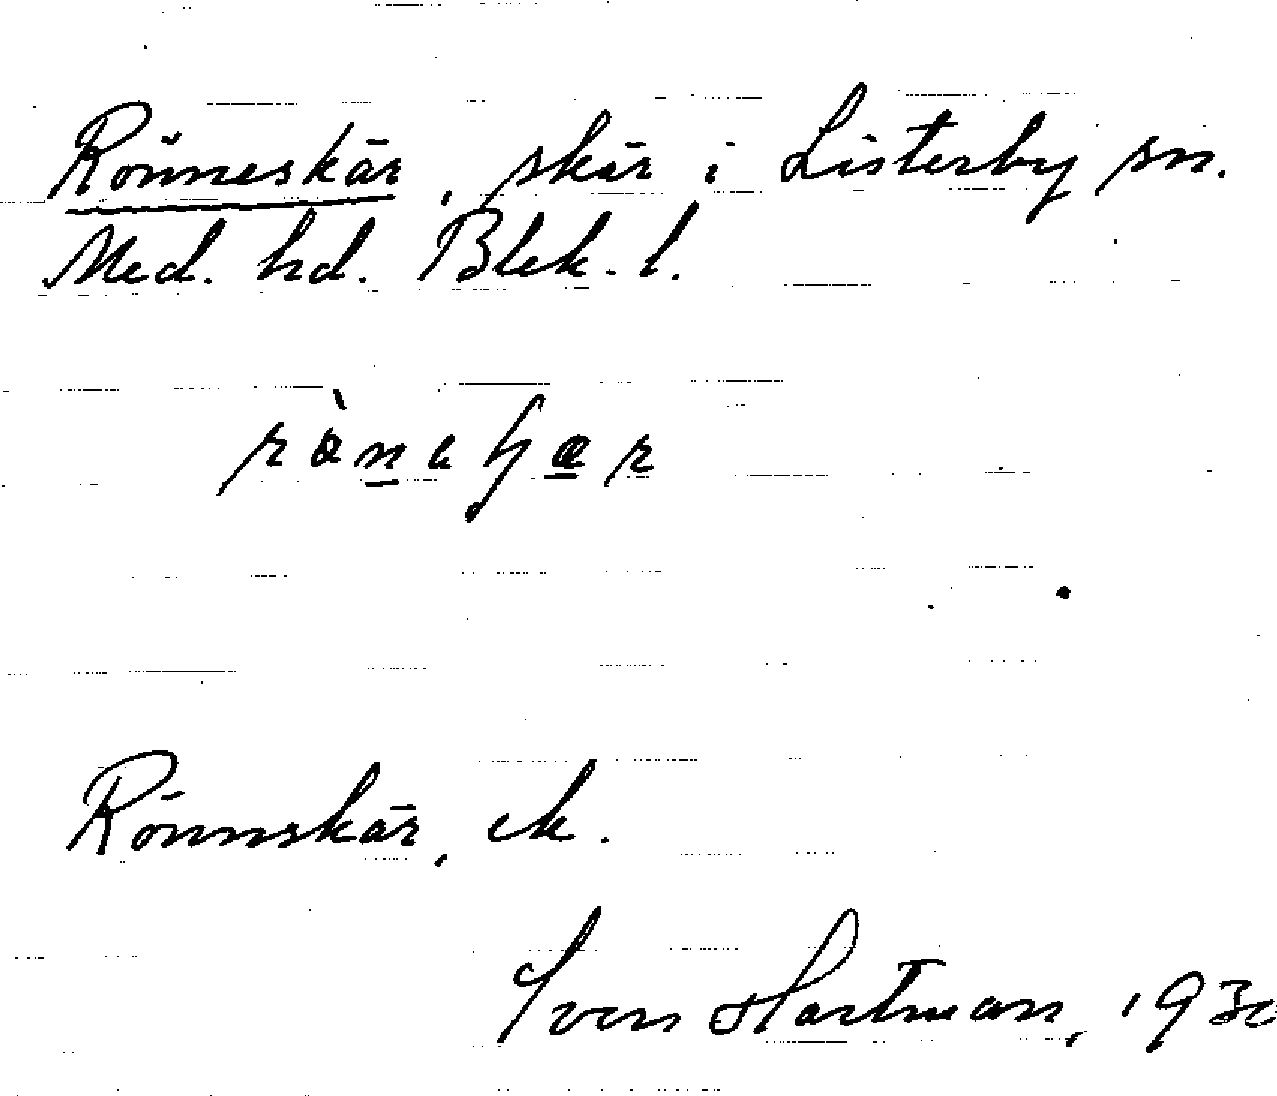 Rönneskär, skär i Listerby sn.
Med. hd. Blek. l.
Rönnskär, ek.
Sven Hartman, 1930